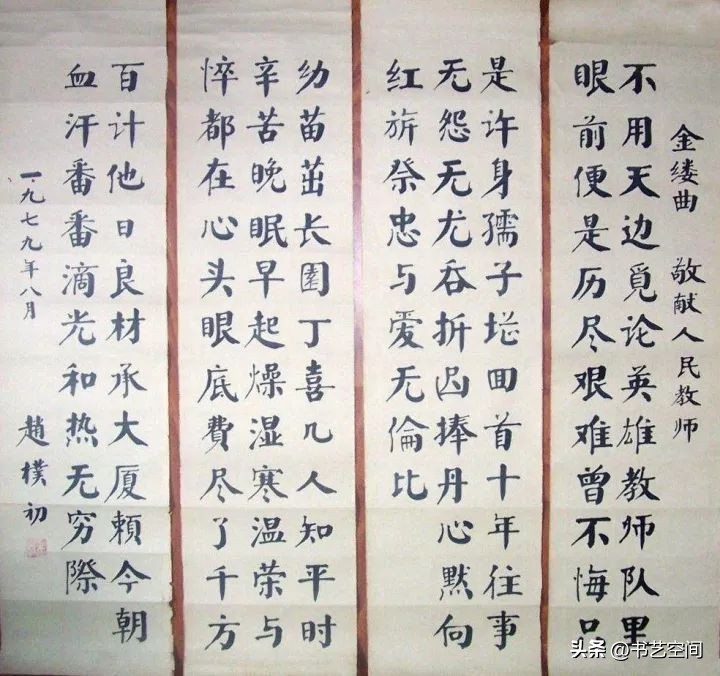 金缕曲 敬献人民教师
不用天边觅论英雄教师队里
眼前便是历尽艰难曾不悔只
是许身孺子堪回首十年往事
无怨无尤吞折齿捧丹心默向
红旂祭忠与爱无倫比
幼苗茁长園丁喜几人知平时
辛苦晚眠早起燥湿寒温荣与
悴都在心头眼底費尽了千方
百计他日良材承大厦頼今朝
血汗番番滴光和热无穷際
一九七九年八月 趙樸初
头条 @书艺空间